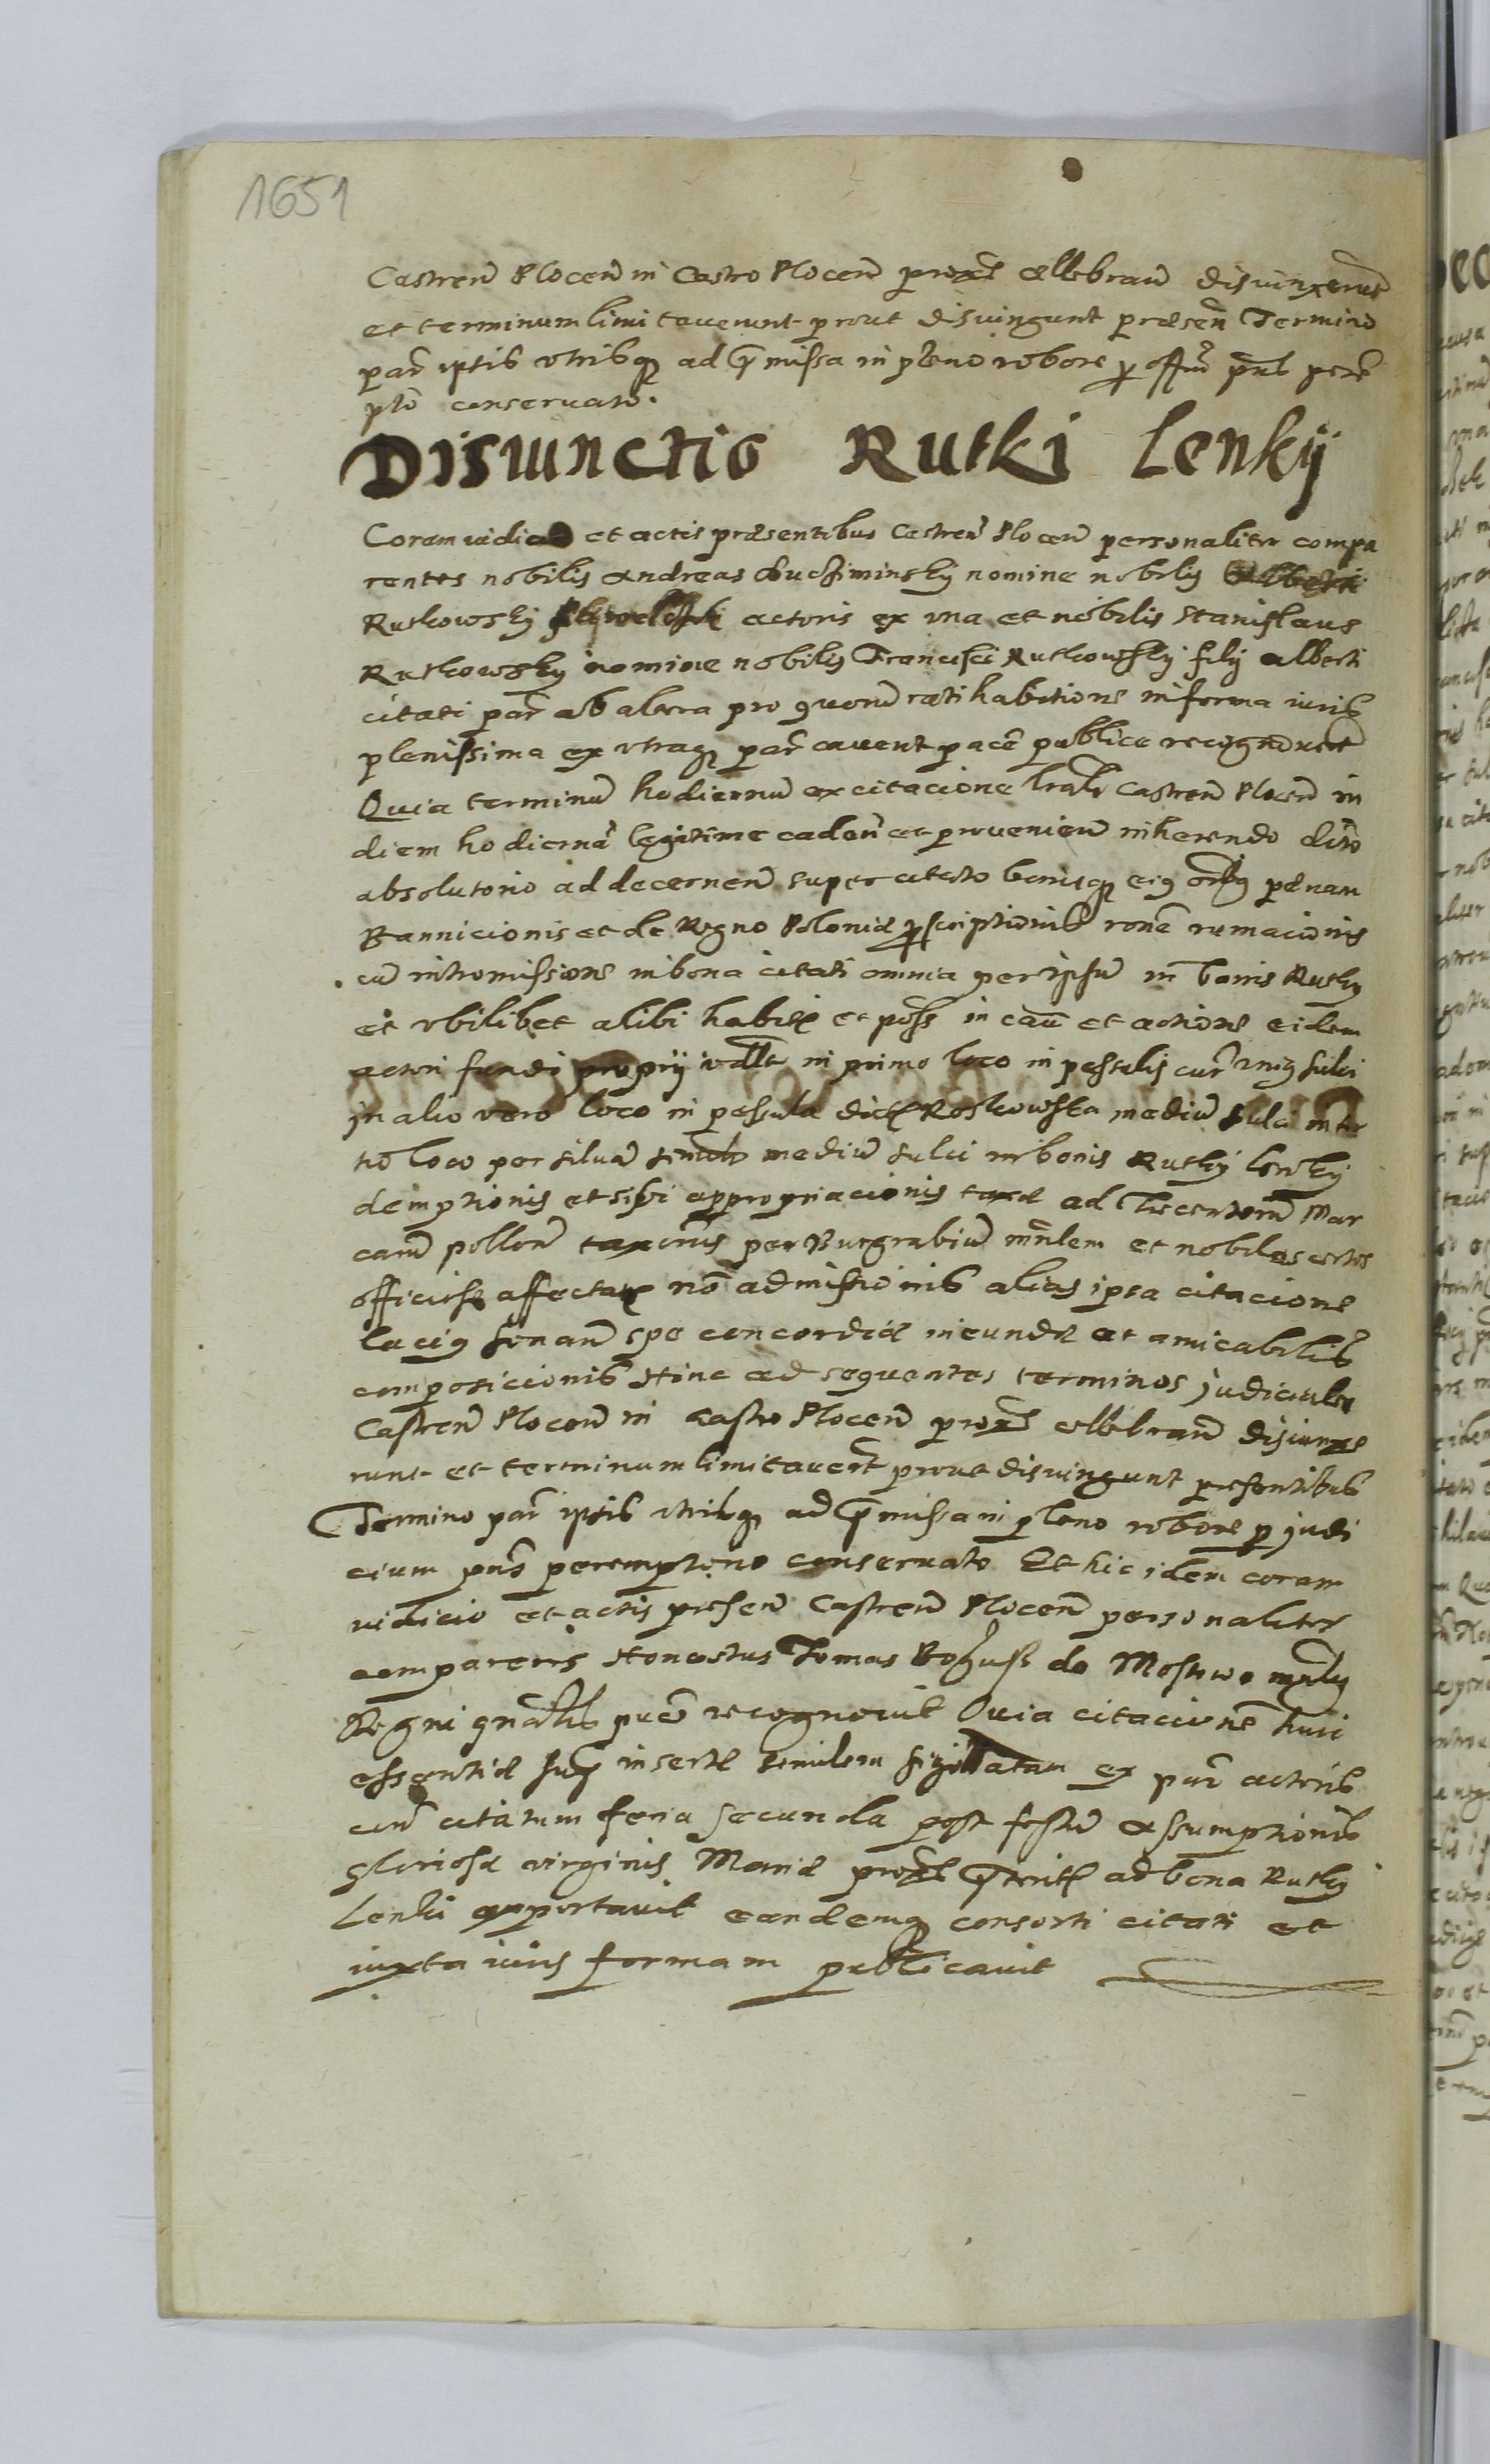 1651
Castren̄ Plocen̄ in Castro Plocen̄ prox̄ cellebran̄ disiunxerunt
et terminum limitauerunt prout disiungunt præsen̄ Termino
par̄ ipsis vtrisq̨ ad p̄missa in pleno robore p offm̄ pn̄s perē
ptō conseruato.
Disiunctio Rutki Lenkij
Coram iudicio et actis præsentibus Castren̄ Plocen̄ personaliter compa
rentes nobilis Andreas nomine nobilis Alberti
Rutkowskij actoris ex vna et nobilis Stanislaus
Rutkowskij nomine nobilis Francisci Rutkowskij filij Alberti
citati par̄ ab altera pro quorū ratihabitione in forma iuris
plenissima ex vtraq̨ par̄ cauent pacē publice recognouert̄
Quia terminū hodiernū ex citacione Castren̄ Plocen̄ in
diem hodiernā legitime caden̄ et prouenien̄ inherendo dito
absolutorio ad decernen̄ super citato bonisq̨ eiq pænam
Bannicionis et de Regno Poloniæ pscriptionis ronē rumacionis
cū intromissione in bona citati omnia per ipsū in bonis Rutky
et vbilibet alibi habit̄ et poss̄ in cau̅ et actione eidem
actori fundi proprij in primo loco in pessulis
in alio vero loco in pessula dict̄ Roskowska mediū sulci in ter
tio loco per siluā mediū sulci in bonis Rutkij lenkij
demptionis et sibi appropriacionis taxæ ad Trecentorū Mar
carū pollon̄ per Burgrabiū mn̄lem et nobiles certos
officiose affectat̄ nō admissionis alias ipsa citacione
laciq sonan̄ spe concordiæ ineundæ et amicabilis
composicionis Hinc ad sequentes terminos Judiciales
Castren̄ Plocen̄ in Castro Plocen̄ prox̄ cellebran̄ disiunxe
runt et terminum limitauert̄ prout disiungunt presentibus
Termino par̄ ipsis vtrisq̨ ad p̄missa in pleno robore p judi
cium pn̄s peremptorio conseruato Et hic idem coram
iudicio et actis presen̄ Castren̄ Plocen̄ personaliter
comparens Honestus Tomas de Mostowo
Regni gnālis recognouit Quia citacionē huic
essentiæ insertæ similem sigillatam ex par̄ actoris
citatum feria secunda post festū Assumptionis
gloriosæ virginis Mariæ prox̄ p̄terit̄ ad bona Rutkij
Lenki apportauit eandemq̨ consorti citati et
iuxta iuris formam publicauit